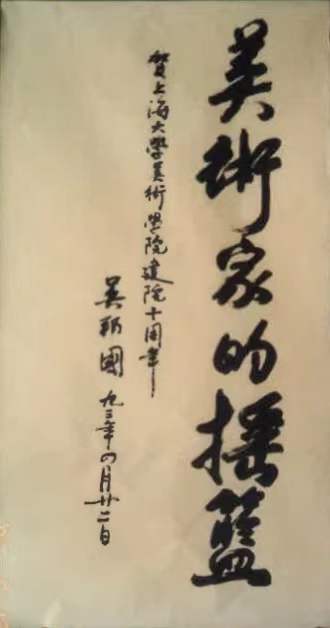 美術家的摇籃
賀上海大學美術學院建院十周年
吴邦國
九三年四月廿二日